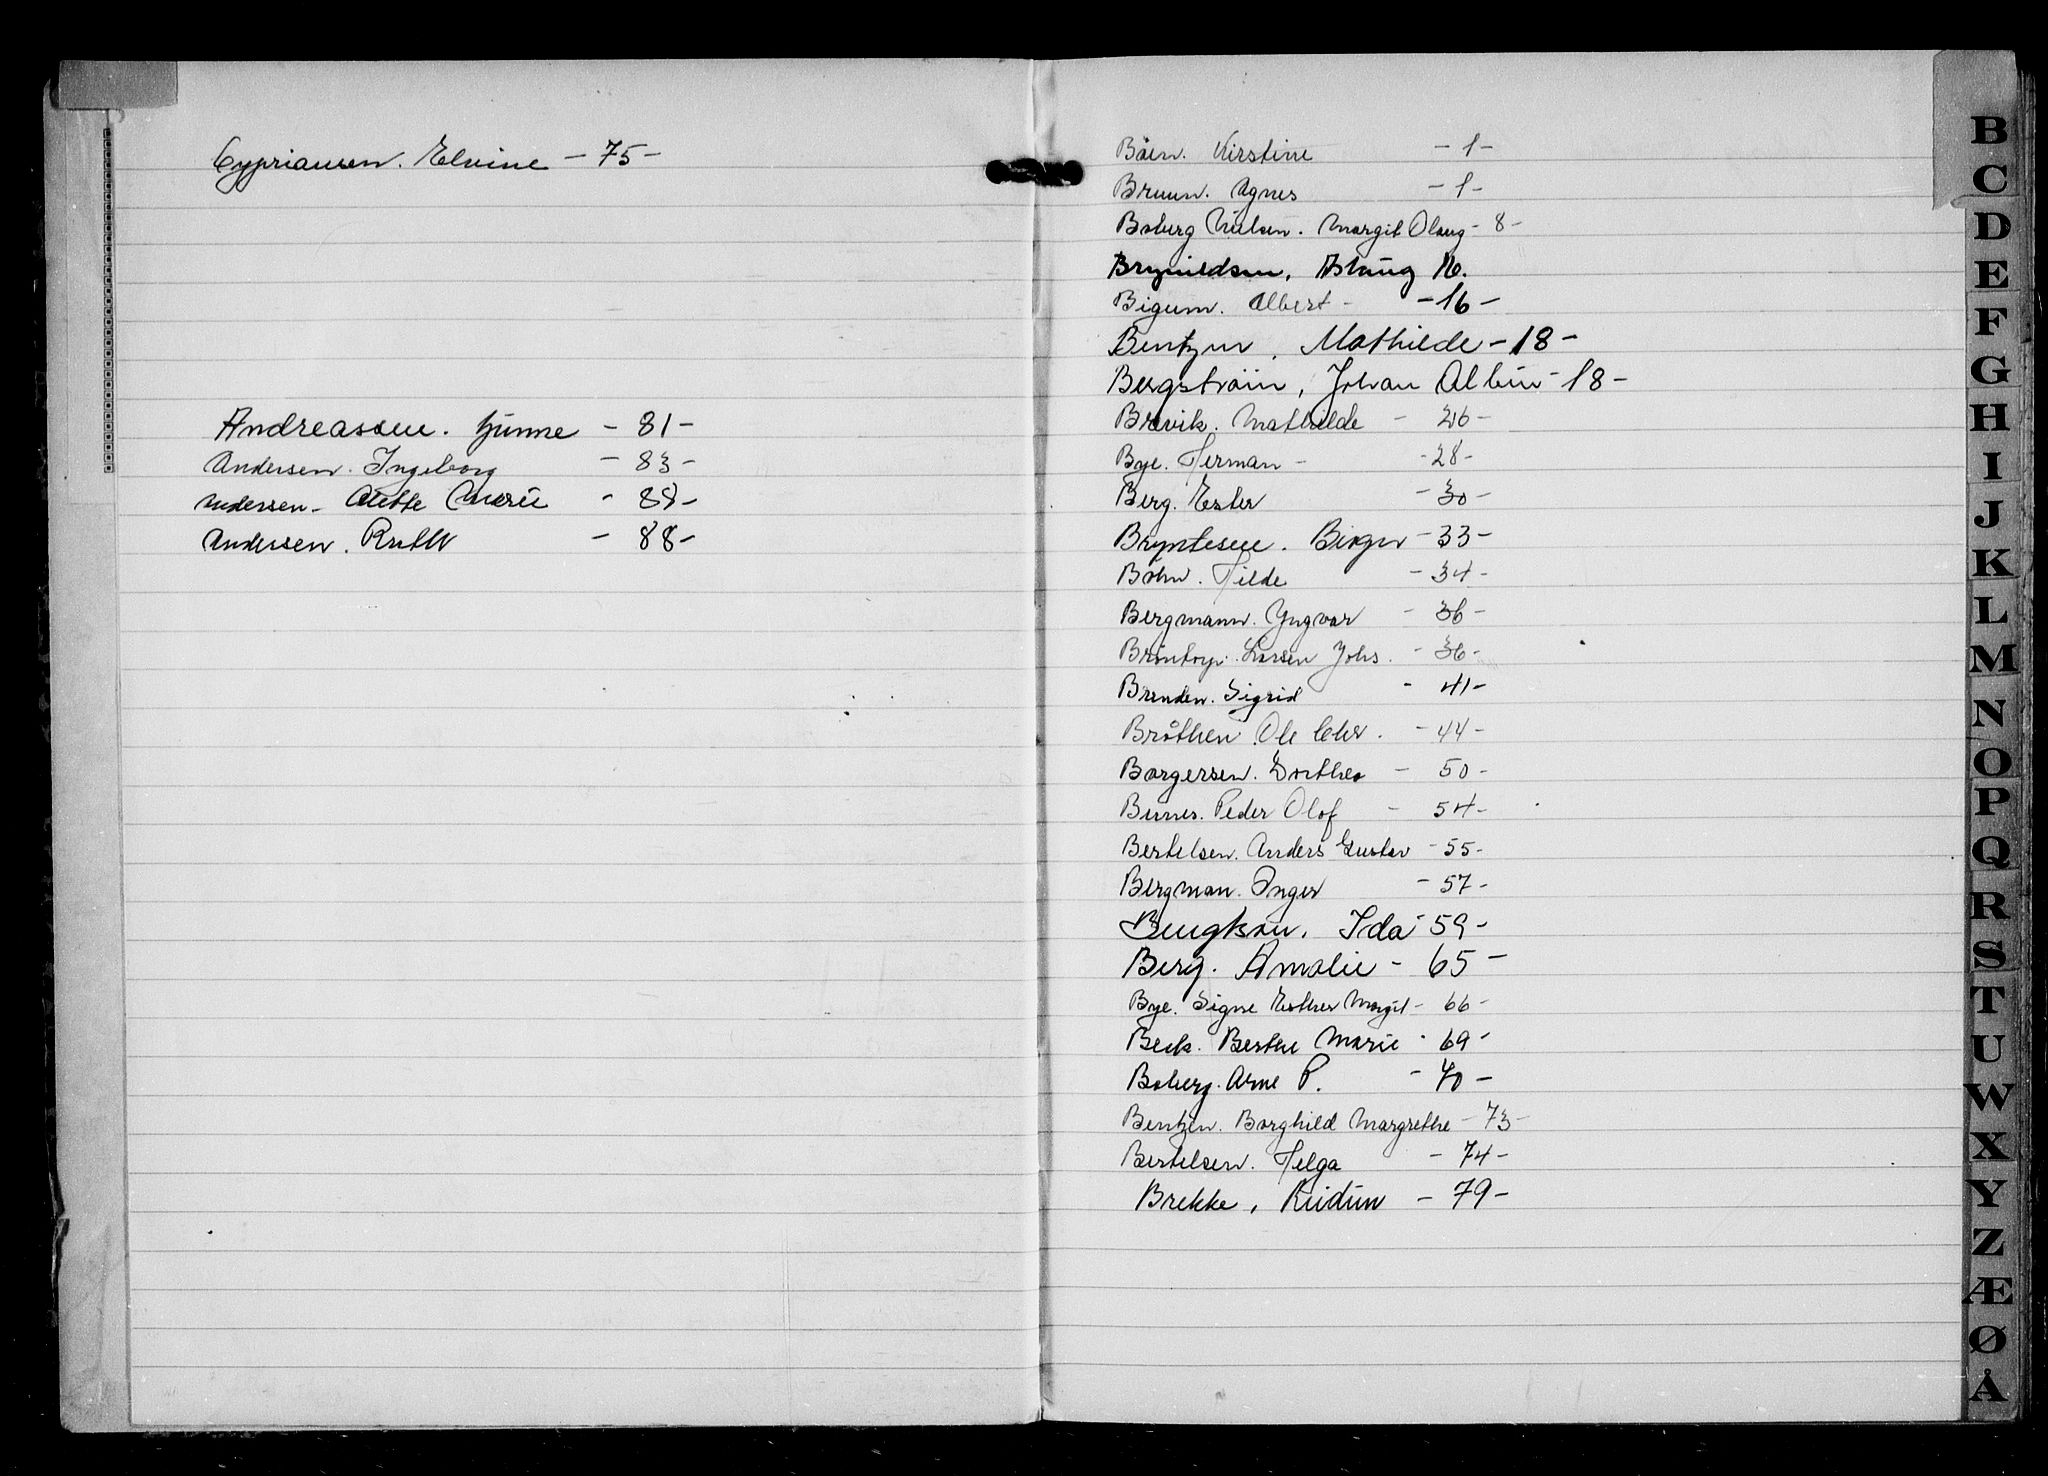 Cypriansen. Elvine - 75 -
Andreassen. - 81 -
Andersen. Ingeborg - 83 -
Andersen. Alette Marie - 88 -
Andersen. Ruth - 88 -
Båen. Kirstine - 1 -
Bruun. Agnes - 1 -
Boberg Nielsen. Margit Olaug - 8 -
Brynildsen, Aslaug 16.
Bigum. Albert - - 16 -
Bentzen, Mathilde - 18 -
Bergstrøm, Johan Albin - 18 -
Brevik. Mathilde - 26 -
Bye. Herman - - 28 -
Berg. Ester - 30 -
Bryntesen. Birger - 33 -
Böhn. Hilde - 34 -
Bergmann. Yngvar - 36 -
Bröntorp. Larsen Johs. - 36 -
Brenden. Sigrid - 41 -
Bråthen. Ole Chr. - 44 -
Borgersen. Dorthea - 50 -
Peder Olof - 54 -
Bertelsen. Anders Gustav - 55 -
Bergman. Inger - 57 -
Bengtson, Ida - 59 -
Berg. Amalie - 65 -
Bye. Signe Esther Margit - 66 -
Beck. Berthe Marie - 69 -
Boberg. Arne P. - 70 -
Bentzen. Borghild Margrethe - 73 -
Bertelsen. Helga - 74 -
Brekke, - 79 -
B
C
D
E
F
G
H
I
J
K
L
M
N
O
P
Q
R
S
T
U
W
X
Y
Z
Æ
Ø
Å